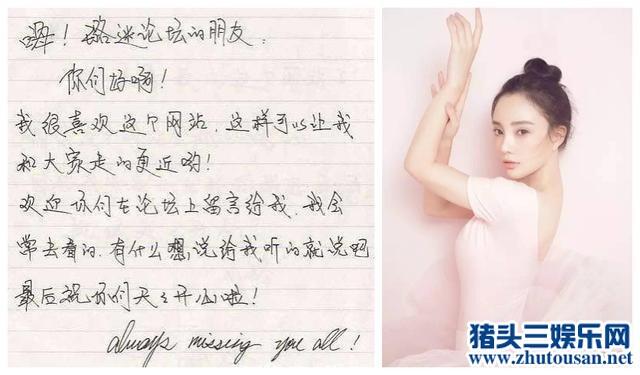 嗨！璐迷论坛的朋友：
你们好啊！
我很喜欢这个网站，这样可以让我
和大家走的更近哟！
欢迎你们在论坛上留言给我，我会
常去看的，有什么想说给我听的就说吧
最后祝你们天天开心啦！
always missing you all！
猪头三娱乐网
www.zhutousan.net